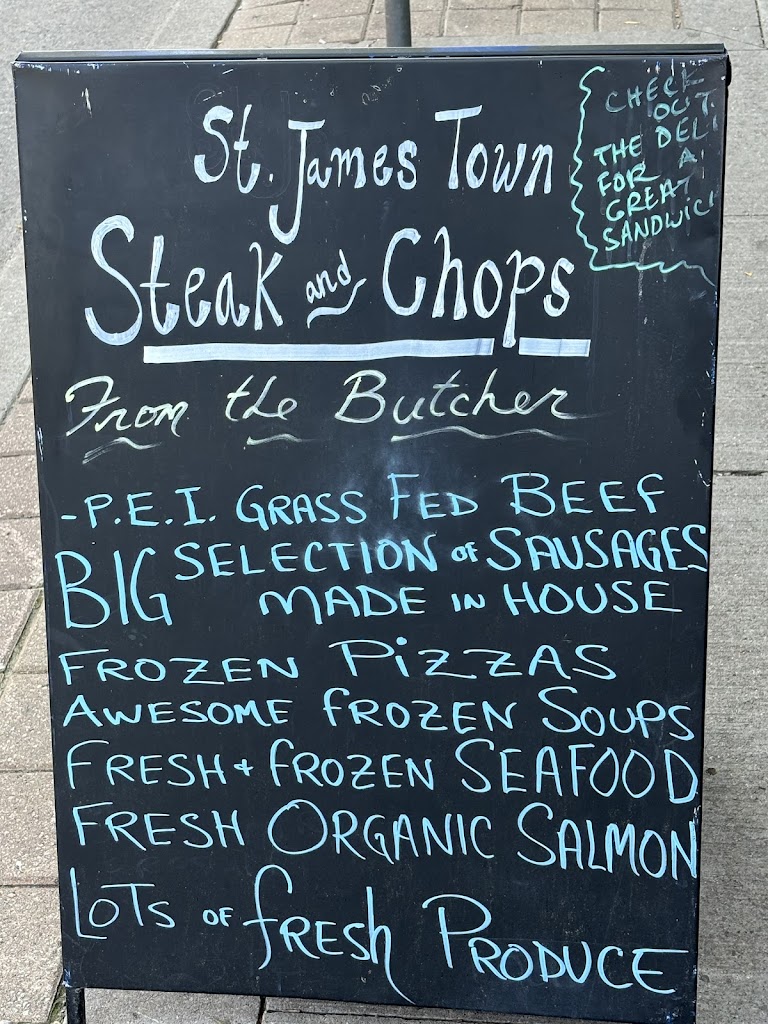 St. James Town
Steak and Chops
CHECK
OUT
THE DELI
FOR A
GREAT
SANDWICH
From the Butcher
-P.E.I. GRASS FED BEEF
BIG SELECTION of SAUSAGES
MADE IN HOUSE
FROZEN PiZZAS
AWESOME FROZEN SOUPS
FRESH + FROZEN SEAFOOD
FRESH ORGANIC SALMON
LOTS OF fRESh PRODUCE